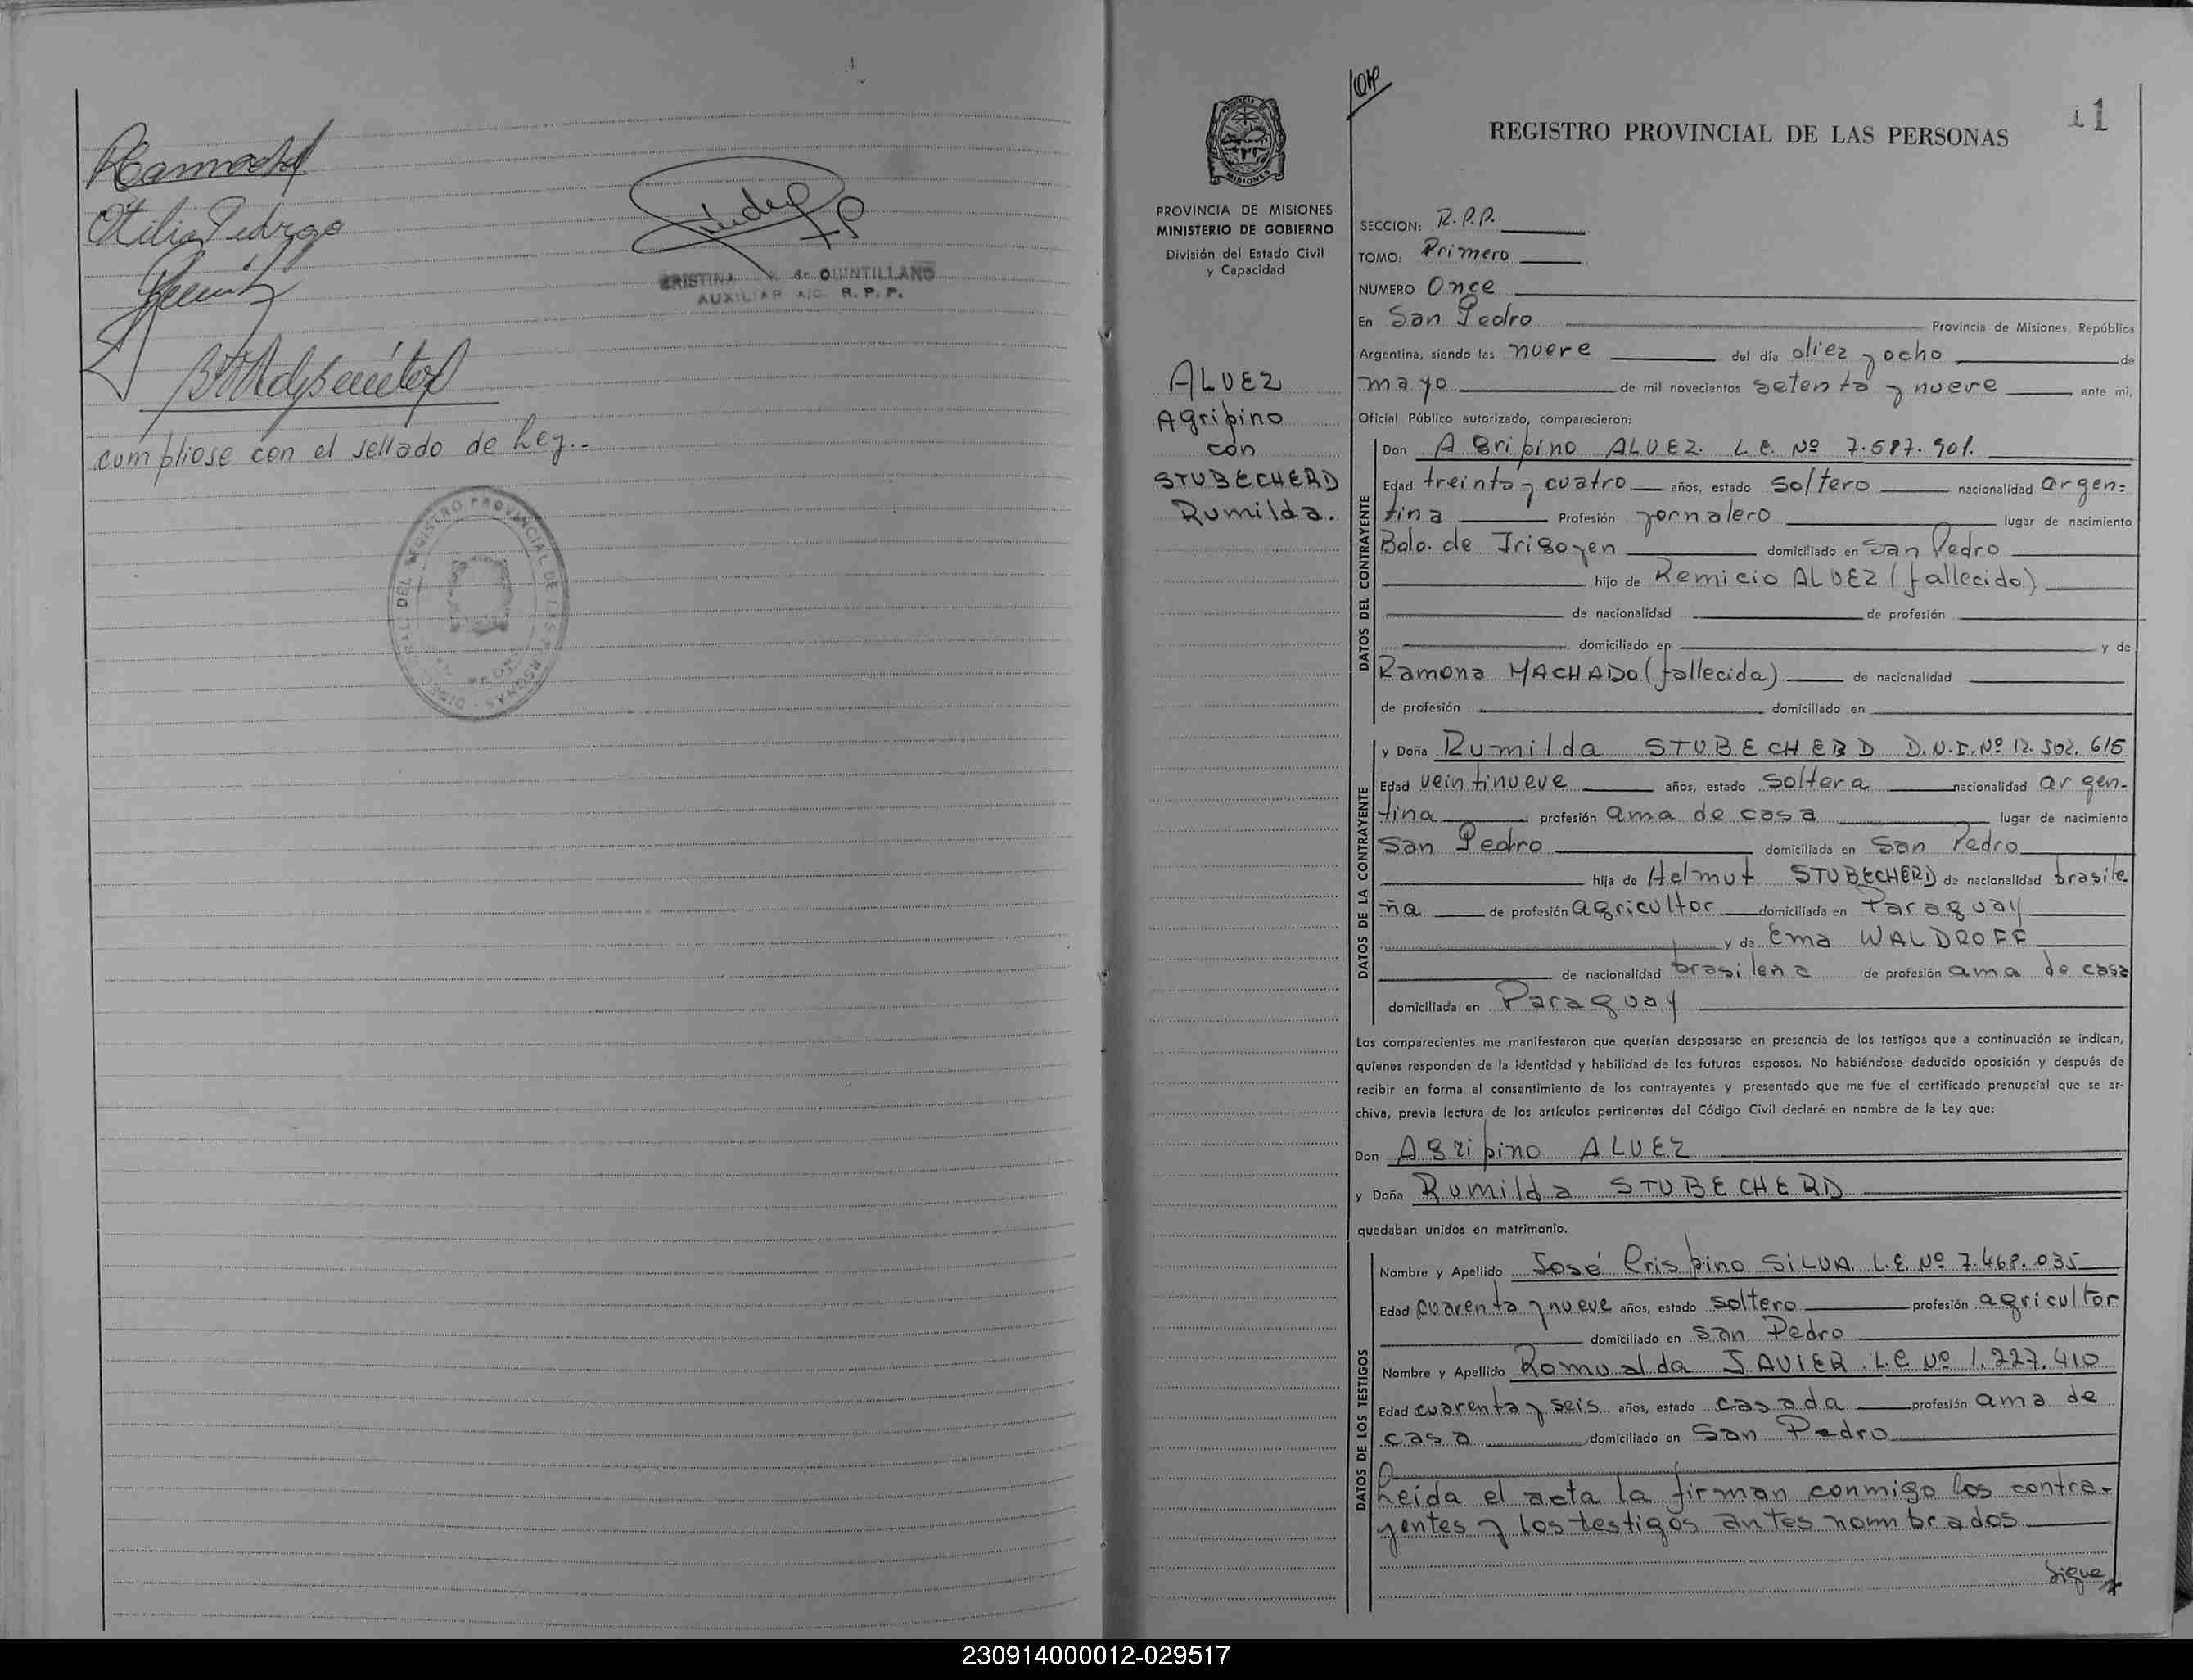 Otilia Pedrozo
CRISTINA de QUINTILLANO
AUXILIAR A/C. R. P. P.
cumpliose con el sellado de Ley.-
REGISTRO PROVINCIAL DE LAS PERSONAS
11
REGISTRO PROVINCIAL DE LAS PERSONAS
PROVINCIA DE
MISIONES
PROVINCIA DE MISIONES
MINISTERIO DE GOBIERNO
División del Estado Civil
y Capacidad
ALVEZ
Agripino
con
STUBECHERD
Rumilda.
SECCION: R.P.P.
TOMO: Primero
NUMERO Once
En San Pedro Provincia de Misiones, República
Argentina, siendo las nueve del día diez y ocho de
mayo de mil novecientos setenta y nueve ante mi,
Oficial Público autorizado, comparecieron:
DATOS DEL CONTRAYENTE
Don Agripino ALVEZ. L.E. Nº 7.587.901.
Edad treinta y cuatro años, estado soltero nacionalidad argen-
tina Profesión jornalero lugar de nacimiento
Bdo. de Irigoyen domiciliado en San Pedro
hijo de Remicio ALVEZ (fallecido)
de nacionalidad de profesión
domiciliado en y de
Ramona MACHADO (fallecida) de nacionalidad
de profesión domiciliado en
DATOS DE LA CONTRAYENTE
y Doña Rumilda STUBECHERD D.N.I. Nº 12.502.615
Edad veintinueve años, estado soltera nacionalidad argen-
tina profesión ama de casa lugar de nacimiento
San Pedro domiciliada en San Pedro
hija de Helmut STUBECHERD de nacionalidad brasile
ña de profesión agricultor domiciliada en Paraguay
y de Ema WALDROFF
de nacionalidad brasileña de profesión ama de casa
domiciliada en Paraguay
Los comparecientes me manifestaron que querían desposarse en presencia de los testigos que a continuación se indican,
quienes responden de la identidad y habilidad de los futuros esposos. No habiéndose deducido oposición y después de
recibir en forma el consentimiento de los contrayentes y presentado que me fue el certificado prenupcial que se ar-
chiva, previa lectura de los artículos pertinentes del Código Civil declaré en nombre de la Ley que:
Don Agripino ALVEZ
y Doña Rumilda STUBECHERD
quedaban unidos en matrimonio.
DATOS DE LOS TESTIGOS
Nombre y Apellido José Crispino SILVA. L.E. Nº 7.468.035
Edad cuarenta y nueve años, estado soltero profesión agricultor
domiciliado en San Pedro
Nombre y Apellido Romualda JAVIER. L.C. Nº 1.227.410
Edad cuarenta y seis años, estado casada profesión ama de
casa domiciliado en San Pedro
Leída el acta la firman conmigo los contra-
yentes y los testigos antes nombrados
Sigue
230914000012-029517